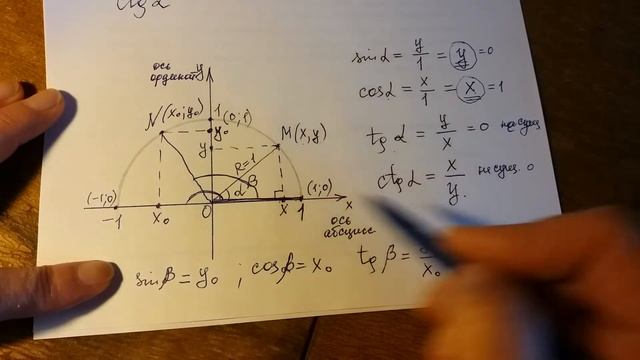 ctg α
ось
ординат
y
N(x₀;y₀)
1
(0;1)
y₀
y
M(x;y)
R=1
β
α
(-1;0)
(1;0)
-1
x₀
0
x
1
x
ось
абсцисс
sinα = y/1 = y = 0
cosα = x/1 = x = 1
tg α = y/x = 0
ctg α = x/y
не сущ.
0
sinβ = y₀ ; cosβ = x₀
tg β =
x₀